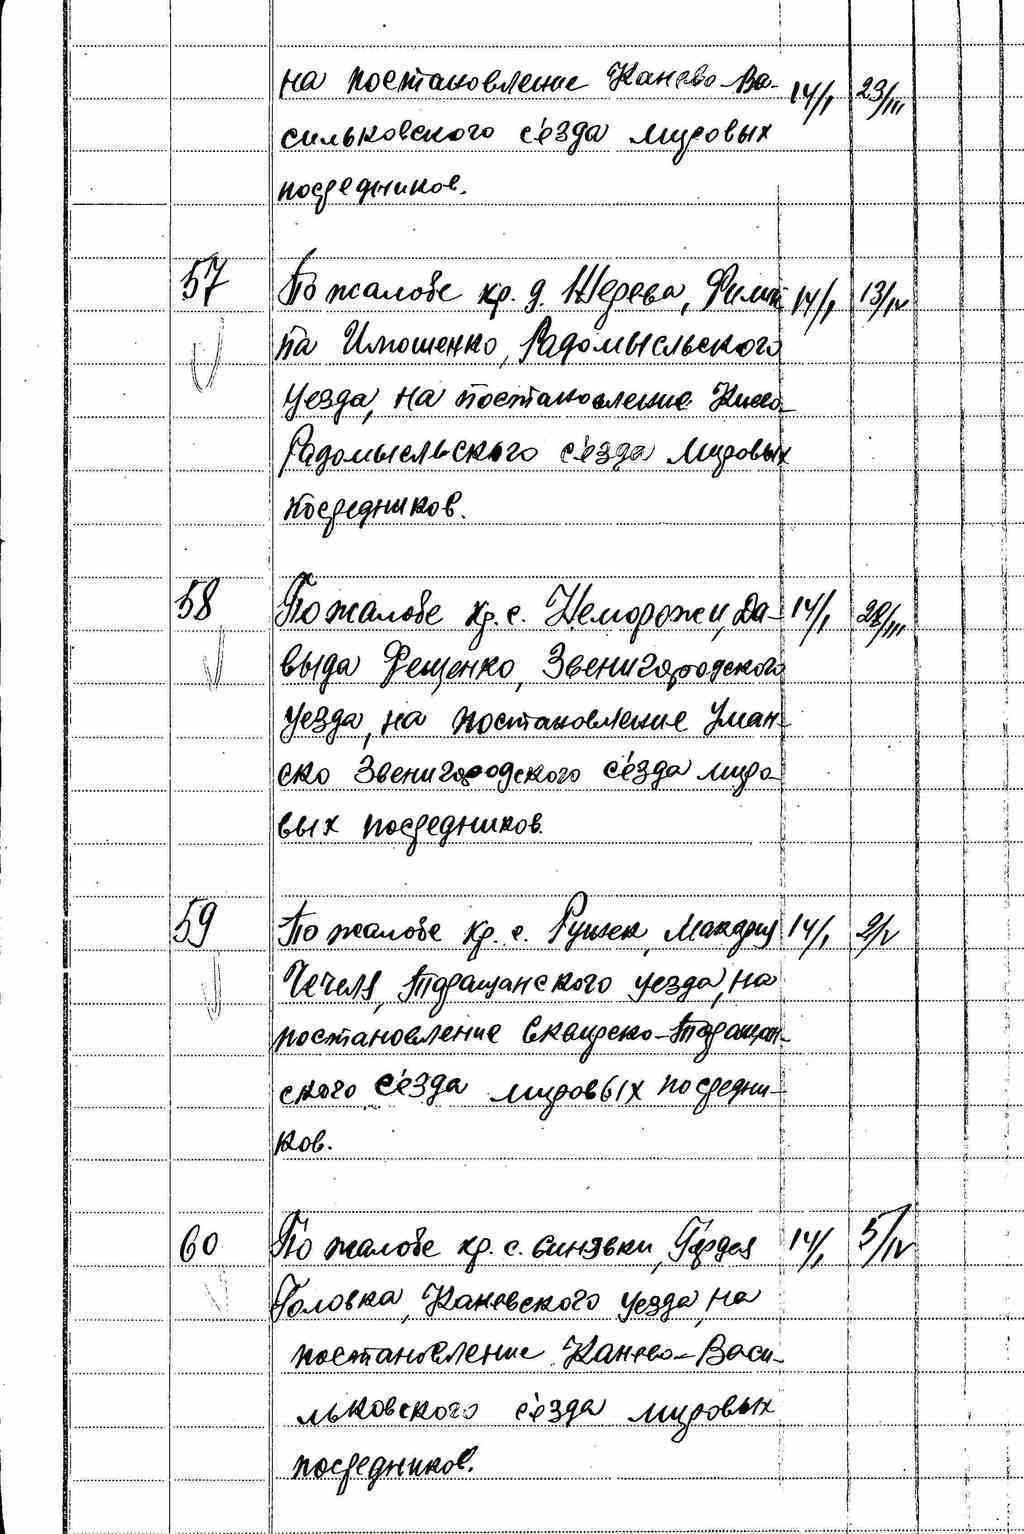 на постановление Канево-Ва- 14/I 23/III
сильковского с'езда мировых
посредников.
57 По жалобе кр. д. Шерева, Филип- 14/I 13/IV
па Имошенко, Радомысльского
уезда, на постановление Киево-
Радомысльского с'езда мировых
посредников.
58 По жалобе кр. с. Неморожи, Да- 14/I 28/III
выда Фещенко, Звенигородского
уезда, на постановление Уман-
ско Звенигородского с'езда миро-
вых посредников.
59 По жалобе кр. с. Ружек, 14/I 2/V
Чечеля, Таращанского уезда, на
постановление Сквирско-Таращан-
ского с'езда мировых посредни-
ков.
60 По жалобе кр. с. Синявки, Гордея 14/I 5/IV
Головка, Каневского уезда, на
постановление Канево-Васи-
льковского с'езда мировых
посредников.